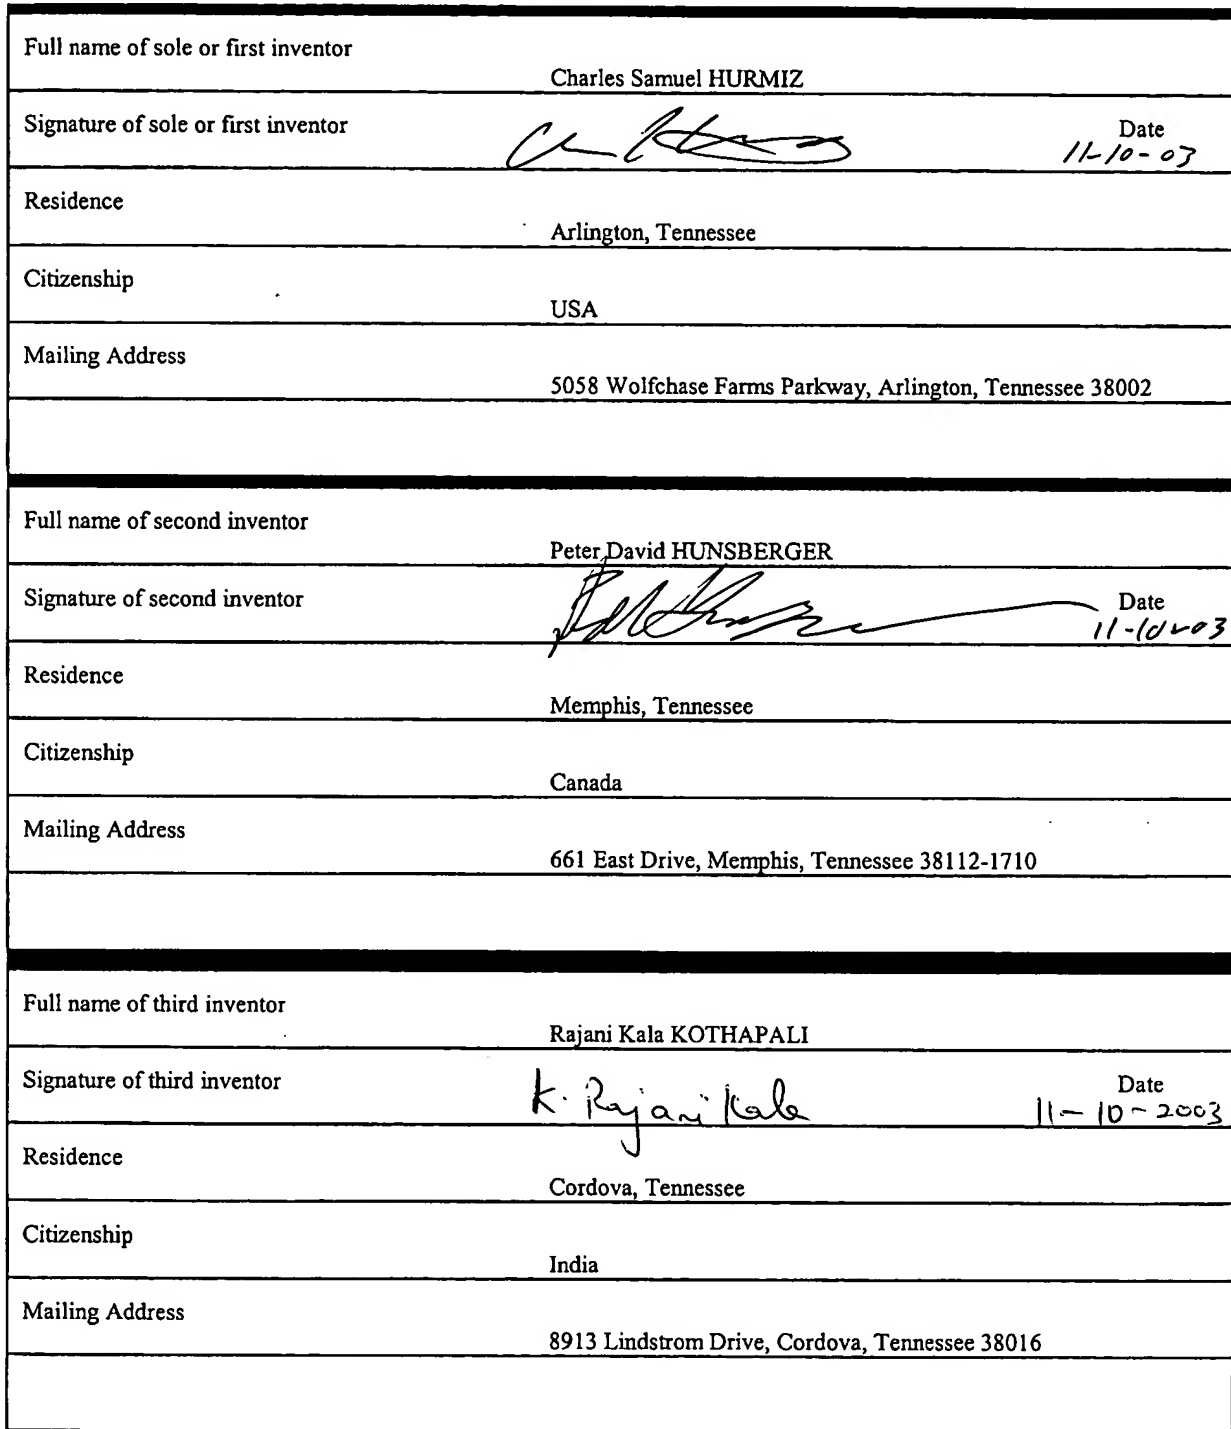 Full name of sole or first inventor
Charles Samuel HURMIZ
Signature of sole or first inventor
Date
11-10-03
Residence
Arlington, Tennessee
Citizenship
USA
Mailing Address
5058 Wolfchase Farms Parkway, Arlington, Tennessee 38002
Full name of second inventor
Peter David HUNSBERGER
Signature of second inventor
Date
11-10-03
Residence
Memphis, Tennessee
Citizenship
Canada
Mailing Address
661 East Drive, Memphis, Tennessee 38112-1710
Full name of third inventor
Rajani Kala KOTHAPALI
Signature of third inventor
K. Rajani Kala
Date
11-10-2003
Residence
Cordova, Tennessee
Citizenship
India
Mailing Address
8913 Lindstrom Drive, Cordova, Tennessee 38016